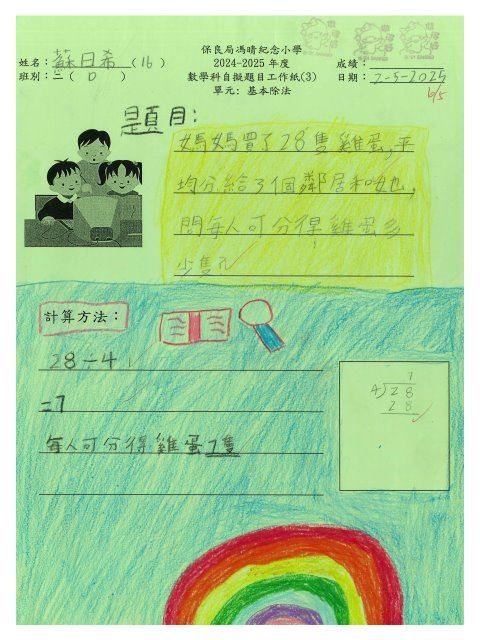 保良局馮晴紀念小學
姓名：蘇日希(16) 2024-2025 年度 成績：
班別：二(D) 數學科自擬題目工作紙(3) 日期：2-5-2025
單元：基本除法
6/5
題目：
媽媽買了28隻雞蛋,平
均分給了個鄰居和她,
問每人可分得雞蛋多
少隻?
計算方法：
28÷4
=7
每人可分得雞蛋7隻
7
4 28
28